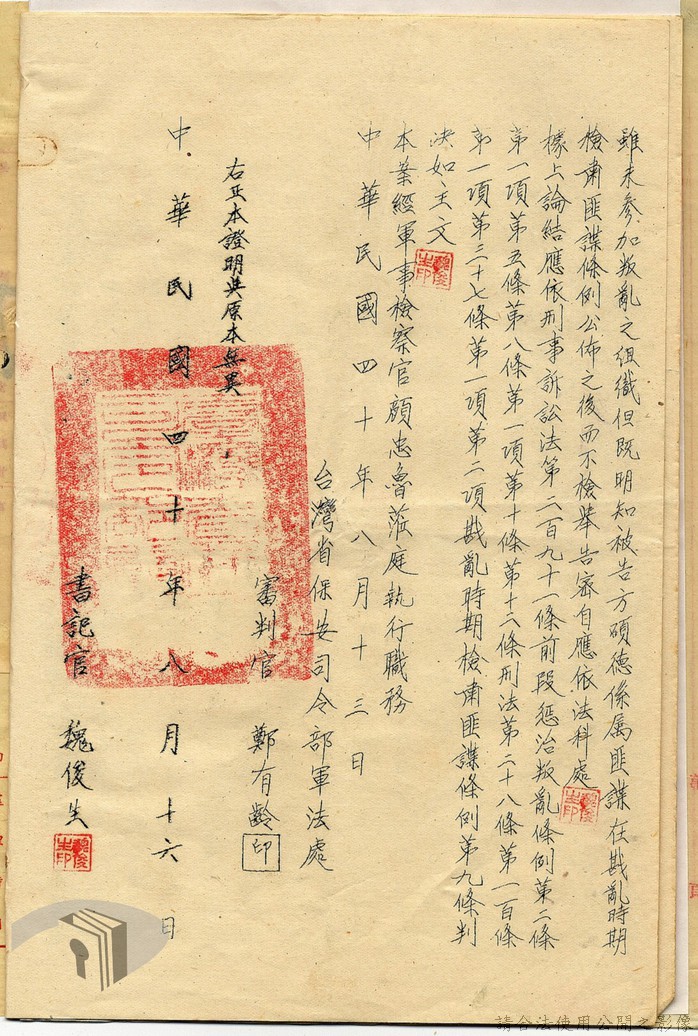 雖未參加叛亂之組織但既明知被告方碩德係属匪諜在戡亂時期
檢肅匪諜條例公佈之後而不檢舉告密自應依法科處
據上論結應依刑事訴訟法第二百九十一條前段惩治叛亂條例第二條
第一項第五條第八條第一項第十條第十六條刑法第二十八條第一百條
第一項第三十七條第一項第二項戡亂時期檢肅匪諜條例第九條判
決如主文
本案經軍事檢察官顏忠魯蒞庭執行職務
中華民國四十年八月十三日
台灣省保安司令部軍法處
審判官 鄭有齡 印
右正本證明與原本無異
中華民國四十年八月十六日
書記官 魏俊生
請合法使用公開之影像